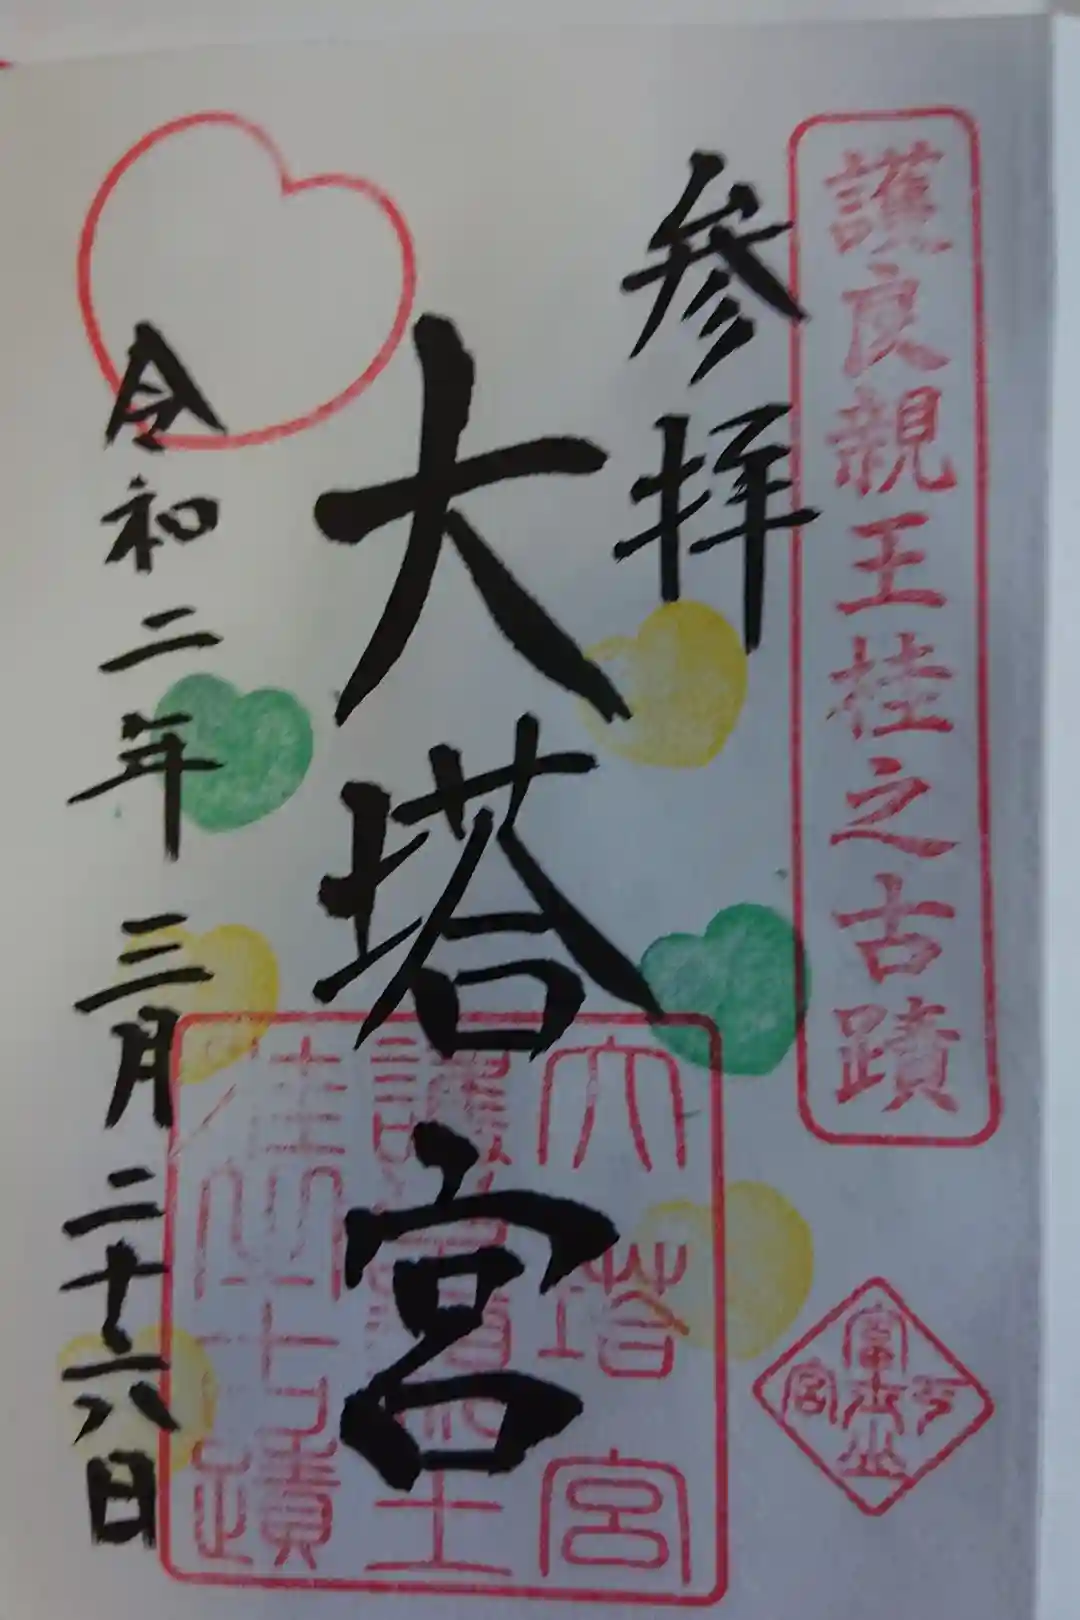 護良親王桂之古蹟
参拝
大塔宮
令和二年三月二十六日
大塔宮
護良親王
桂之古蹟
富士山下宮